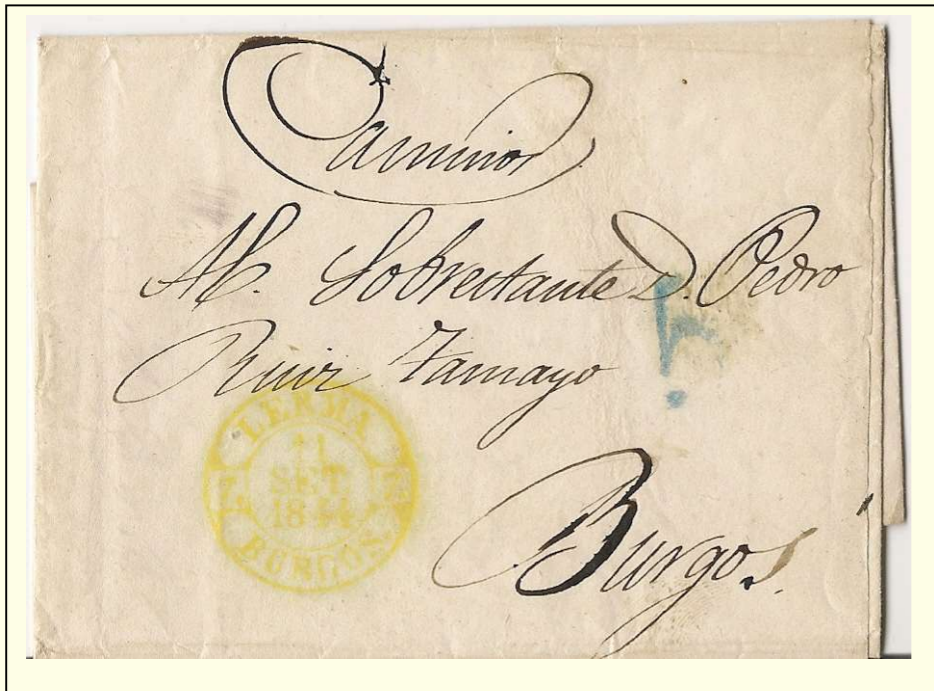 Caminos
Al. Sobrestante D. Pedro
Ruiz Tamayo
Burgos.
LERMA
SET
1844
BURGOS.